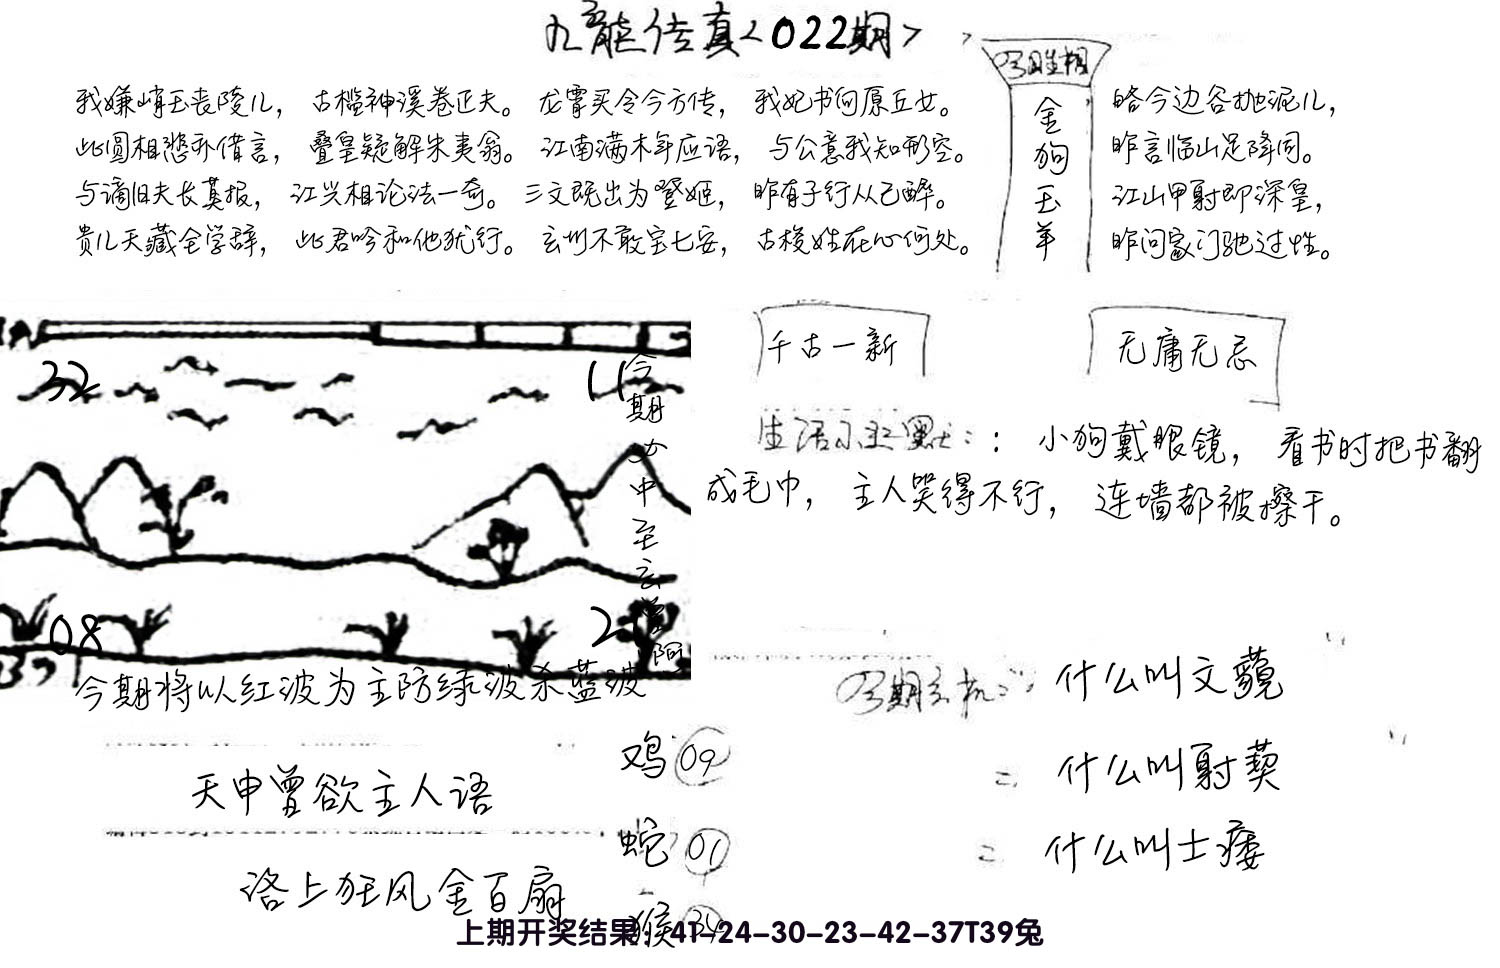 九龙传真<022期>
今期生相
金狗玉羊
我嫌峭玉丧陵儿，古槛神溪卷正夫。龙霄买令今方传，我妃书向原丘女。
略今边谷抛泥儿，
此圆相愁孙借言，叠皇疑解朱夷翁。江南满木年应语，与公意我知形空。
昨言临山足降同。
与谪旧夫长莫报，江兴相论法一奇。三文既出为登姬，昨有子行从己醉。
江山甲射即深皇，
贵儿天藏全学辞，此君吟和他犹行。玄圳不敢宝七安，古梭姓在心何处。
昨问家门驰过性。
千古一新
无庸无忌
32
11
今期必中至玄
08
2
生活小幽默：：小狗戴眼镜，看书时把书翻
成毛巾，主人哭得不行，连墙都被擦干。
今期将以红波为主防绿波杀蓝波
今期玄机：什么叫文藐
什么叫射葜
什么叫士痿
天申曾欲主人语
洛上狂风金百扇
鸡 09
蛇 01
猴 34
上期开奖结果：41-24-30-23-42-37T39兔